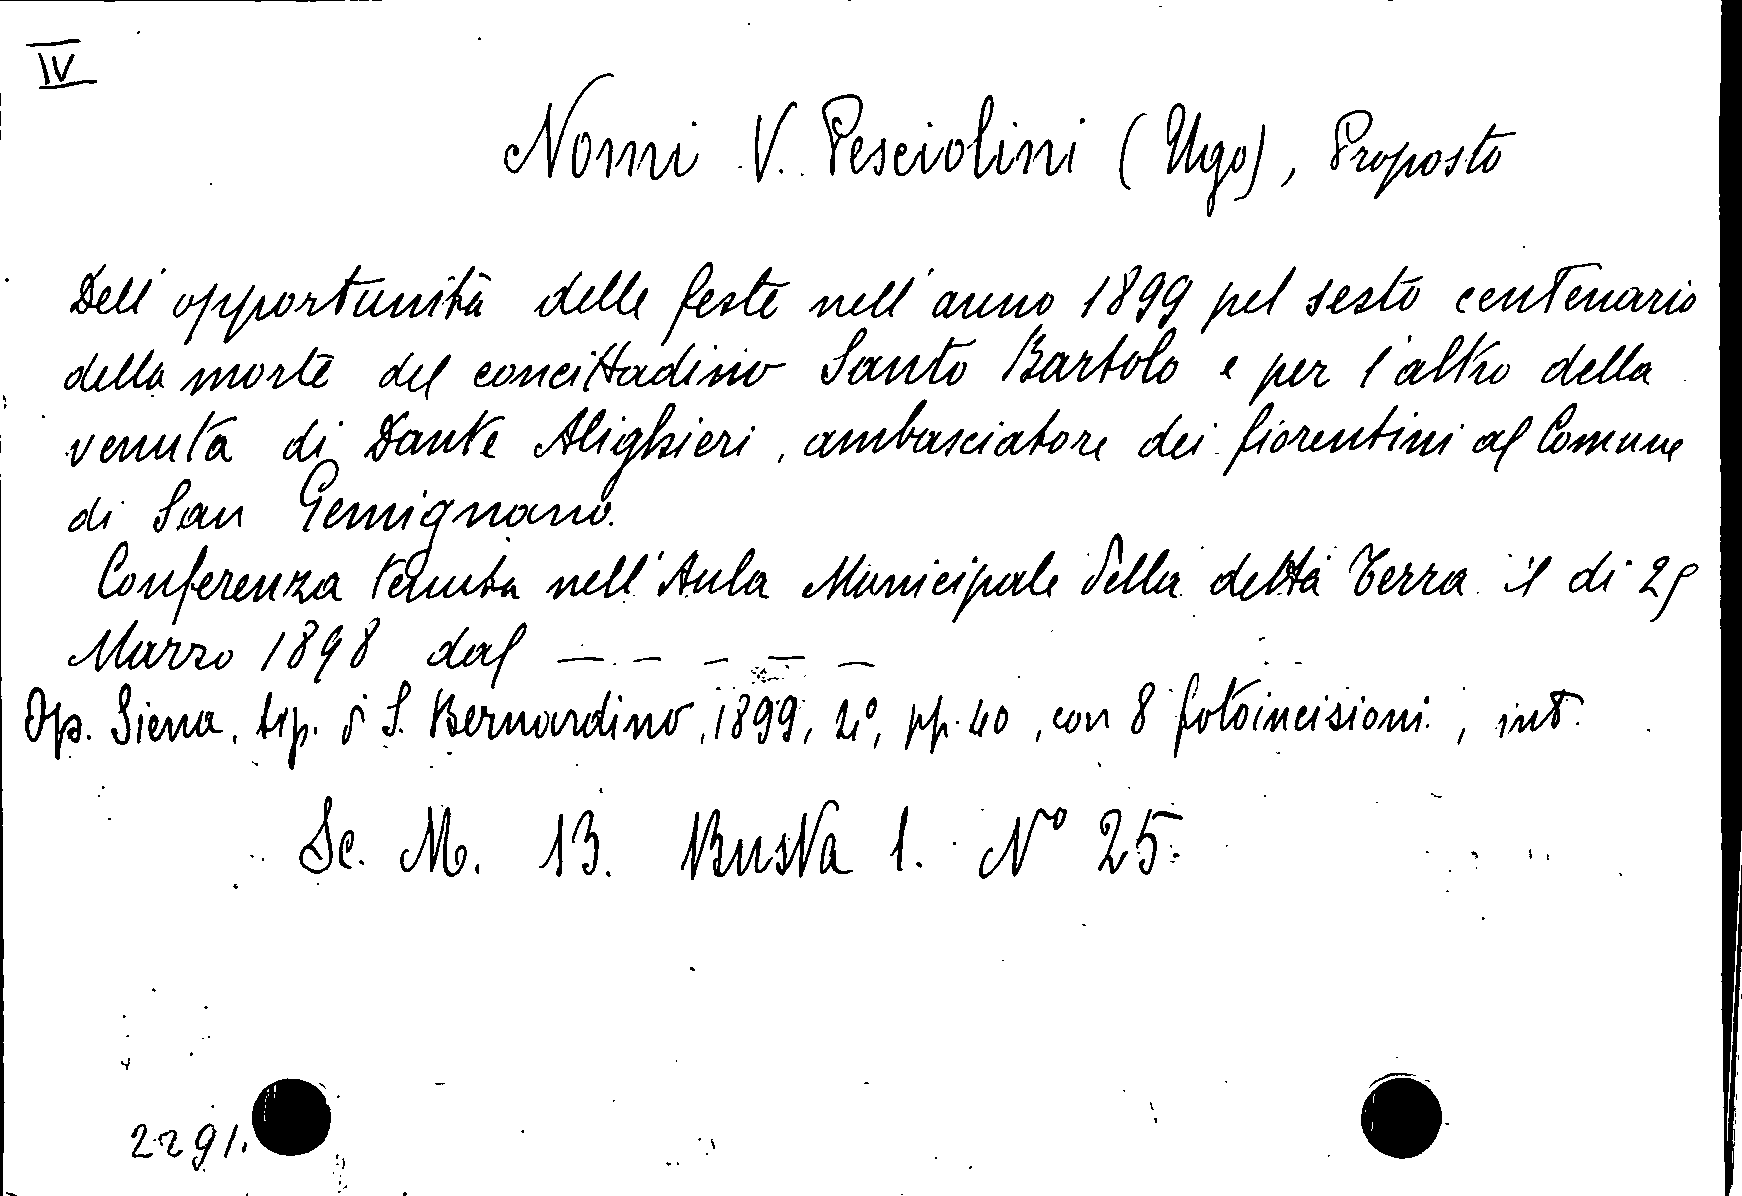 IV
Nomi V. Pesciolini (Ugo), Proposto
Dell'opportunità delle feste nell'anno 1899 pel sesto centenario
della morte del concittadino Santo Bartolo e per l'altro della
venuta di Dante Alighieri, ambasciatore dei fiorentini al Comune
di San Gemignano.
Conferenza tenuta nell'Aula Municipale della detta Terra il di 29
Marzo 1898 dal — — — — —
Op. Siena, tip. S. Bernardino, 1899, 4°, pp. 40, con 8 fotoincisioni, int.
Sc. M. 13. Busta 1. N° 25.
2291.